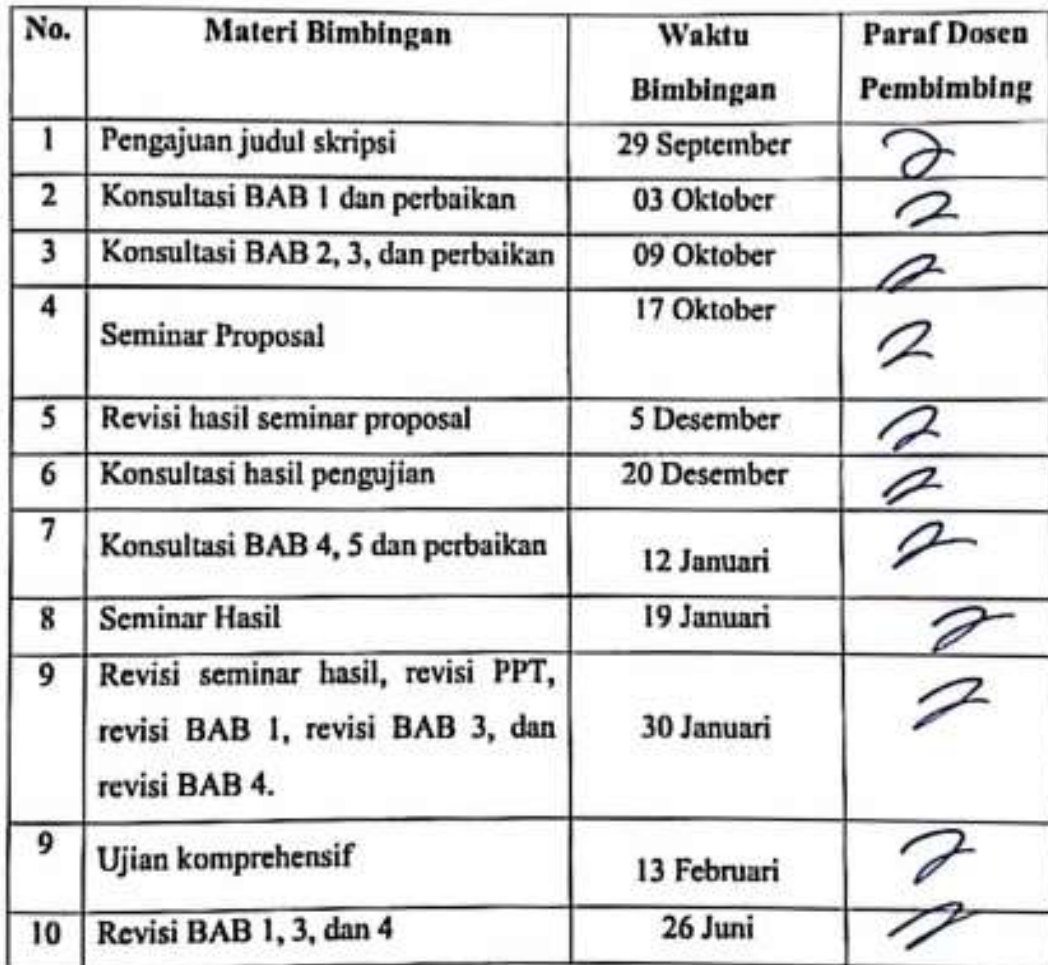 No. Materi Bimbingan Waktu Bimbingan Paraf Dosen Pembimbing
1 Pengajuan judul skripsi 29 September
2 Konsultasi BAB 1 dan perbaikan 03 Oktober
3 Konsultasi BAB 2, 3, dan perbaikan 09 Oktober
4 Seminar Proposal 17 Oktober
5 Revisi hasil seminar proposal 5 Desember
6 Konsultasi hasil pengujian 20 Desember
7 Konsultasi BAB 4, 5 dan perbaikan 12 Januari
8 Seminar Hasil 19 Januari
9 Revisi seminar hasil, revisi PPT,
revisi BAB 1, revisi BAB 3, dan 30 Januari
revisi BAB 4.
9 Ujian komprehensif 13 Februari
10 Revisi BAB 1, 3, dan 4 26 Juni